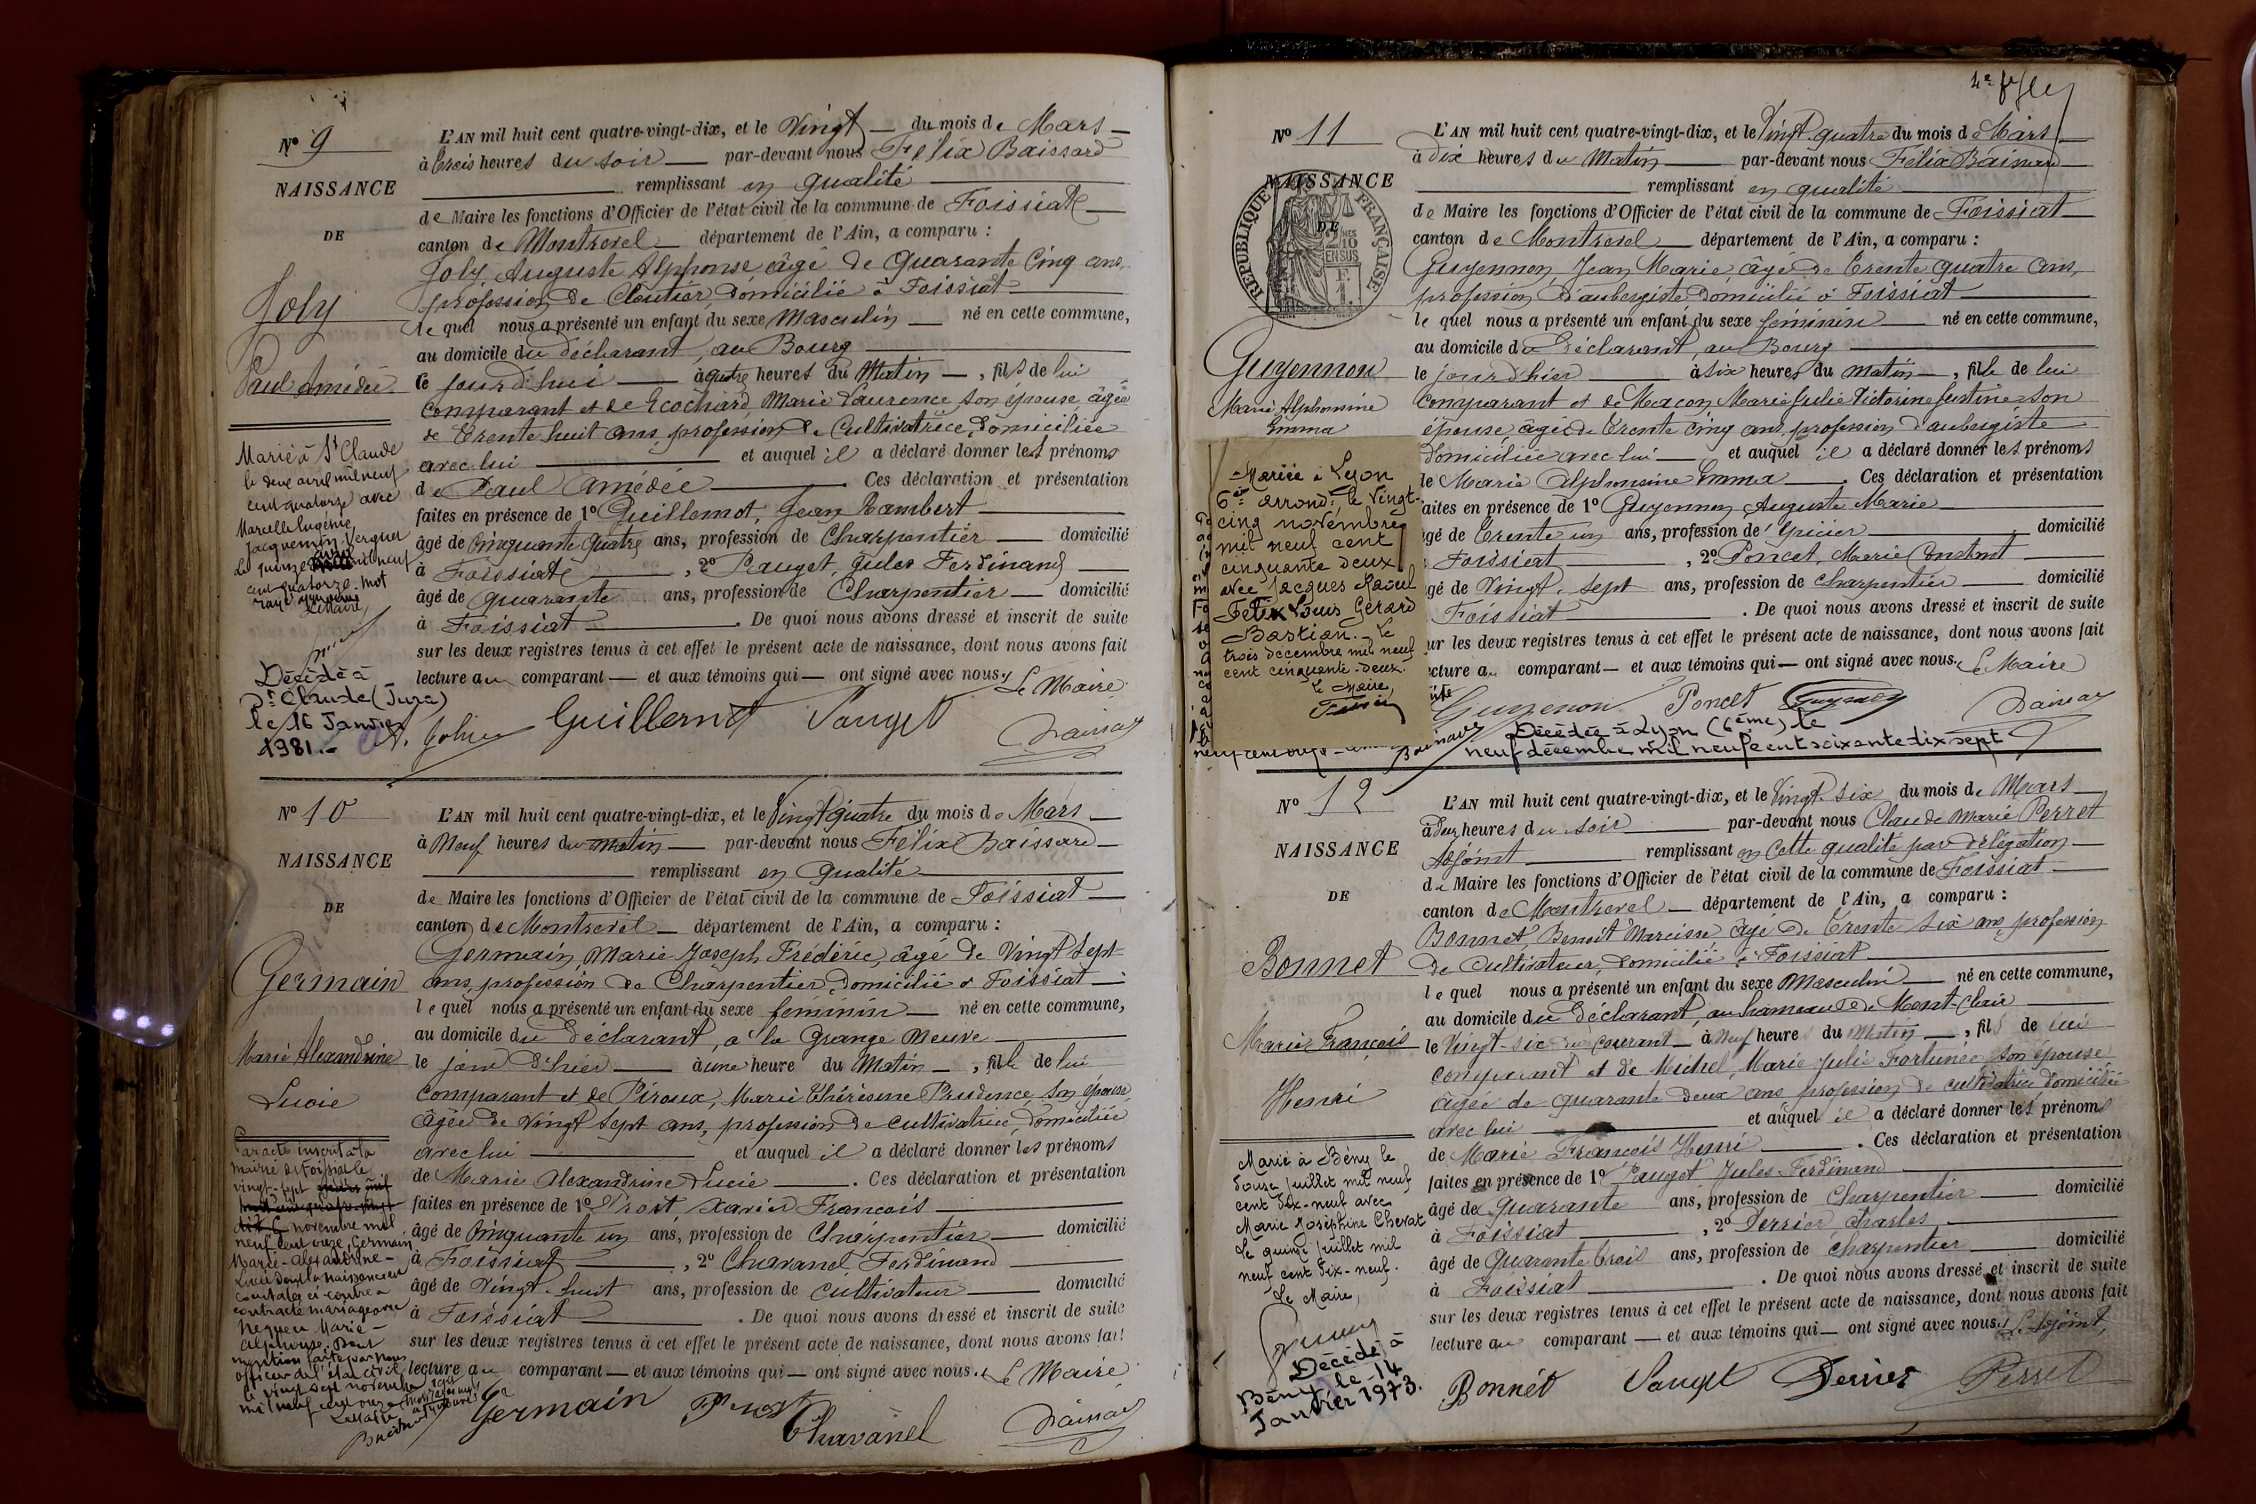 Nº 9
NAISSANCE
DE
Joly
Paul Amédée
Marié à St Claude
le deux avril mil neuf
cent quatorze avec
Marcelle Eugénie
Jacquemin Verguet
le quinze avril mil neuf
cent quatorze. mot
rayé
Le Maire,
Décédé à
St Claude (Jura)
le 16 Janvier
1981.-
L'AN mil huit cent quatre-vingt-dix, et le Vingt du mois de Mars
à trois heures du soir par-devant nous Félix Baissard
remplissant en qualité
de Maire les fonctions d'Officier de l'état civil de la commune de Foissiat
canton de Montrevel département de l'Ain, a comparu :
Joly, Auguste Alphonse, âgé de quarante cinq ans,
profession de Cloutier, domicilié à Foissiat
le quel nous a présenté un enfant du sexe Masculin né en cette commune,
au domicile du déclarant, au Bourg
le jour d'hui à quatre heures du Matin, fils de lui
comparant et de Ecochard, Marie Laurence son épouse âgée
de trente huit ans, profession de Cultivatrice, domiciliée
avec lui et auquel il a déclaré donner les prénoms
de Paul Amédée. Ces déclaration et présentation
faites en présence de 1º Guillemot, Jean Rambert
âgé de Cinquante quatre ans, profession de Charpentier domicilié
à Foissiat, 2º Pauget, Jules Ferdinand
âgé de quarante ans, profession de Charpentier domicilié
à Foissiat. De quoi nous avons dressé et inscrit de suite
sur les deux registres tenus à cet effet le présent acte de naissance, dont nous avons fait
lecture au comparant et aux témoins qui ont signé avec nous. Le Maire
Guillemot Pauget
Nº 10
NAISSANCE
DE
Germain
Marie Alexandrine
Lucie
Par acte inscrit à la
mairie de Foissiat le
vingt-sept
novembre mil
neuf cent onze, Germain
Marie-Alexandrine-
Lucie dont la naissance est
constatée ci-contre a
contracté mariage avec
Marie-
Alphonse. Dont
mention faite par nous
officier de l'état civil
le vingt sept novembre
mil neuf cent onze
Le Maire
L'AN mil huit cent quatre-vingt-dix, et le Vingt quatre du mois de Mars
à Neuf heures du matin par-devant nous Félix Baissard
remplissant en qualité
de Maire les fonctions d'Officier de l'état civil de la commune de Foissiat
canton de Montrevel département de l'Ain, a comparu :
Germain Marie Joseph Frédéric, âgé de Vingt Sept
ans, profession de Charpentier, domicilié à Foissiat
le quel nous a présenté un enfant du sexe féminin né en cette commune,
au domicile du déclarant, à la Grange Neuve
le jour d'hier à une heure du Matin, fille de lui
comparant et de Piroux, Marie Thérésine Prudence, son épouse
âgée de Vingt Sept ans, profession de cultivatrice, domiciliée
avec lui et auquel il a déclaré donner les prénoms
de Marie Alexandrine Lucie. Ces déclaration et présentation
faites en présence de 1º Prost Xavier François
âgé de Cinquante un ans, profession de Charpentier domicilié
à Foissiat, 2º Chavanel Ferdinand
âgé de Vingt huit ans, profession de cultivateur domicilié
à Foissiat. De quoi nous avons dressé et inscrit de suite
sur les deux registres tenus à cet effet le présent acte de naissance, dont nous avons fait
lecture au comparant et aux témoins qui ont signé avec nous. Le Maire
Germain Prost
Chavanel
Nº 11
NAISSANCE
DE
REPUBLIQUE FRANÇAISE
2/10
EN SUS
Guyennon
Marie Alphonsine
Emma
Mariée à Lyon
6e arrond. le vingt-
cinq novembre
mil neuf cent
cinquante deux
avec Jacques Raoul
Félix Louis Gérard
Bastian. Le
trois décembre mil neuf
cent cinquante-deux.
Le Maire,
L'AN mil huit cent quatre-vingt-dix, et le Vingt quatre du mois de Mars
à dix heures du Matin par-devant nous Félix Baissard
remplissant en qualité
de Maire les fonctions d'Officier de l'état civil de la commune de Foissiat
canton de Montrevel département de l'Ain, a comparu :
Guyennon, Jean Marie, âgé de trente quatre ans,
profession d'aubergiste domicilié à Foissiat
le quel nous a présenté un enfant du sexe féminin né en cette commune,
au domicile du déclarant, au Bourg
le jour d'hier à six heures du matin, fille de lui
comparant et de Macon Marie Julie Victorine Justine son
épouse, âgée de trente cinq ans, profession d'aubergiste
domiciliée avec lui et auquel il a déclaré donner les prénoms
de Marie Alphonsine Emma. Ces déclaration et présentation
faites en présence de 1º Guyennon Auguste Marie
âgé de trente un ans, profession d'épicier domicilié
Foissiat, 2º Poncet, Marie Constant
âgé de Vingt sept ans, profession de charpentier domicilié
Foissiat. De quoi nous avons dressé et inscrit de suite
sur les deux registres tenus à cet effet le présent acte de naissance, dont nous avons fait
lecture au comparant et aux témoins qui ont signé avec nous. Le Maire
Guyenon Poncet
Décédée à Lyon (6ème) le
neuf décembre mil neuf cent soixante dix sept
Nº 12
NAISSANCE
DE
Bonnet
Marie François
Henri
Marié à Bény le
douze juillet mil neuf
cent dix-neuf avec
Marie Joséphine Chevat
Le quinze juillet mil
neuf cent dix-neuf.
Le Maire,
Décédé à
Bény le 14
Janvier 1973.
L'AN mil huit cent quatre-vingt-dix, et le Vingt six du mois de Mars
à deux heures du soir par-devant nous Claude Marie Perret
Adjoint remplissant en cette qualité par délégation
de Maire les fonctions d'Officier de l'état civil de la commune de Foissiat
canton de Montrevel département de l'Ain, a comparu :
Bonnet, Benoît Narcisse âgé de trente six ans, profession
de Cultivateur, domicilié à Foissiat
le quel nous a présenté un enfant du sexe Masculin né en cette commune,
au domicile du déclarant, au hameau de Mont-Clair
le Vingt-six du courant à Neuf heure du Matin, fils de lui
comparant et de Michel, Marie Julie Fortunée son épouse
âgée de quarante deux ans profession de cultivatrice domiciliée
avec lui et auquel il a déclaré donner les prénoms
de Marie François Henri. Ces déclaration et présentation
faites en présence de 1º Pauget Jules Ferdinand
âgé de Quarante ans, profession de Charpentier domicilié
à Foissiat, 2º Perrier Charles
âgé de Quarante trois ans, profession de charpentier domicilié
à Foissiat. De quoi nous avons dressé et inscrit de suite
sur les deux registres tenus à cet effet le présent acte de naissance, dont nous avons fait
lecture au comparant et aux témoins qui ont signé avec nous. L'Adjoint,
Bonnet Pauget Perrier Perret